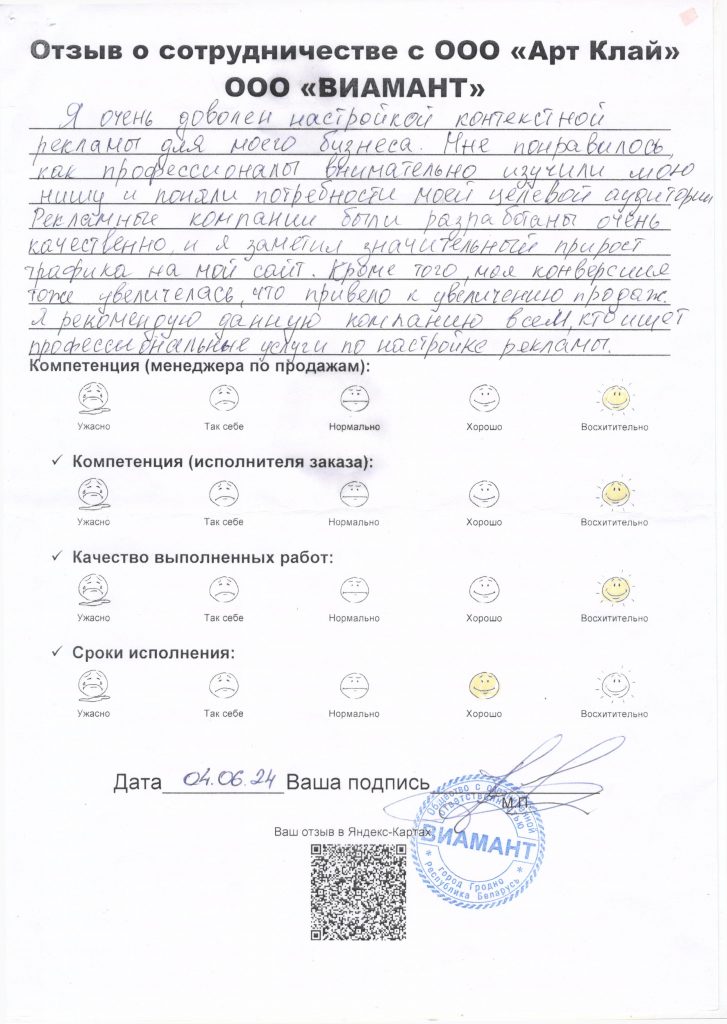 Отзыв о сотрудничестве с ООО «Арт Клай»
ООО «ВИАМАНТ»
Я очень доволен настройкой контекстной
рекламы для моего бизнеса. Мне понравилось,
как профессионалы внимательно изучили мою
нишу и поняли потребности моей целевой аудитории
Рекламные компании были разработаны очень
качественно, и я заметил значительный прирост
трафика на мой сайт. Кроме того, моя конверсия
тоже увеличелась, что привело к увеличению продаж.
Я рекомендую данную компанию всем, кто ищет
профессиональные услуги по настройке рекламы.
Компетенция (менеджера по продажам):
Ужасно Так себе Нормально Хорошо Восхитительно
✓ Компетенция (исполнителя заказа):
Ужасно Так себе Нормально Хорошо Восхитительно
✓ Качество выполненных работ:
Ужасно Так себе Нормально Хорошо Восхитительно
✓ Сроки исполнения:
Ужасно Так себе Нормально Хорошо Восхитительно
Дата 04.06.24 Ваша подпись
М.П.
Общество с ограниченной
ответственностью
ВИАМАНТ
город Гродно
* Республика Беларусь *
Ваш отзыв в Яндекс-Картах